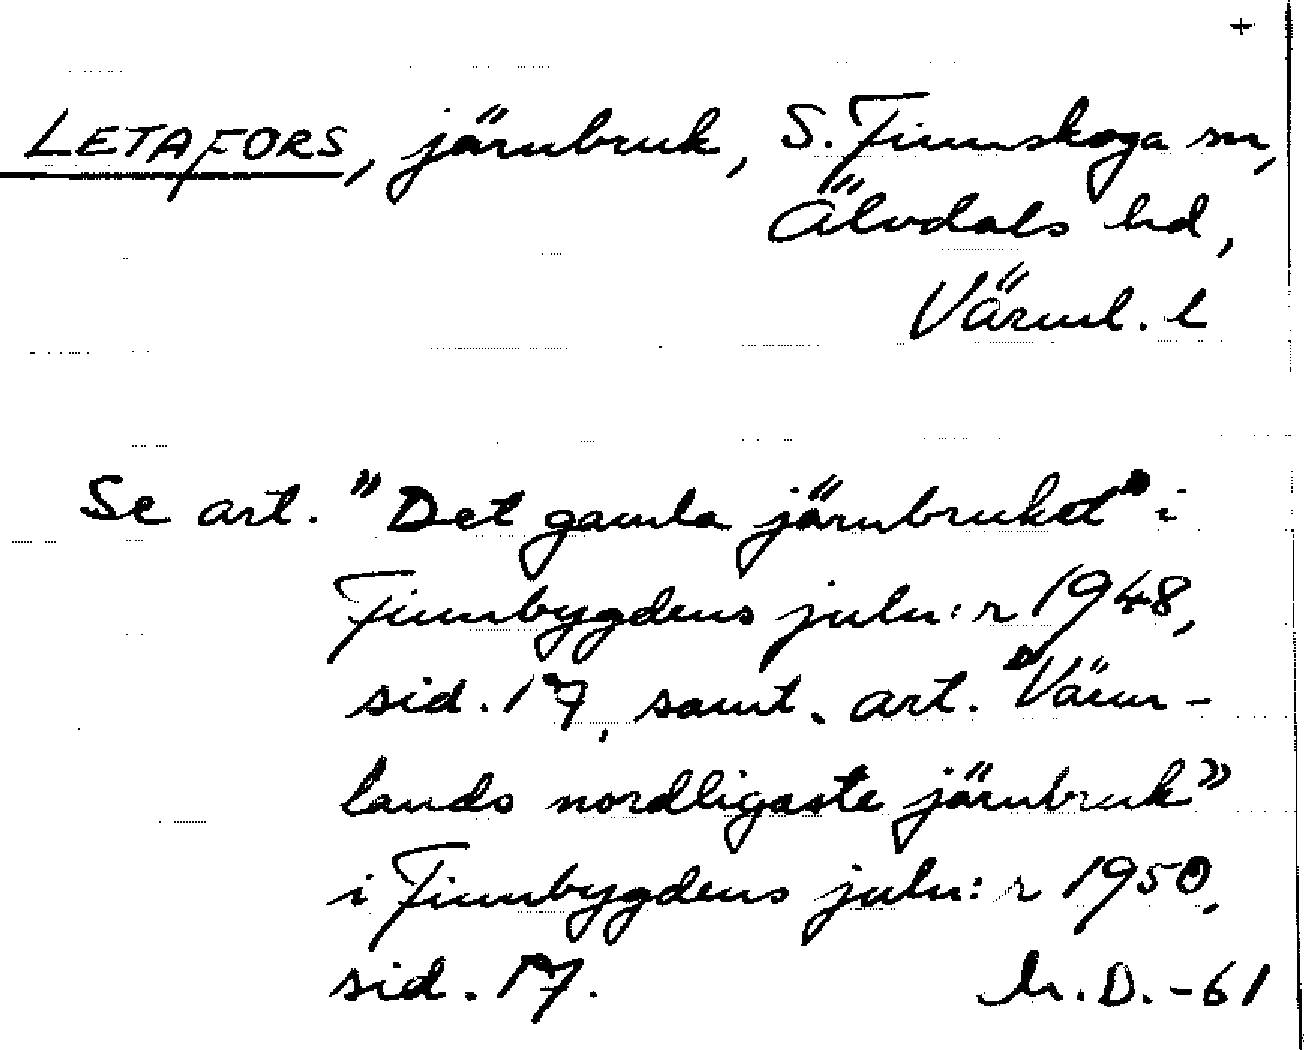 +
LETAFORS, järnbruk, S. Finnskoga sn,
Älvdals hd,
Värml. l
Se art. "Det gamla järnbruket" i
Finnbygdens juln:r 1948,
sid. 17, samt. art. "Värm-
lands nordligaste järnbruk"
i Finnbygdens juln:r 1950,
sid. 17. D. -61